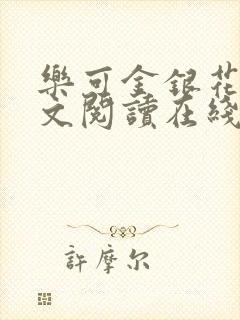 樂可金銀花
文閱讀在綫
許摩尔